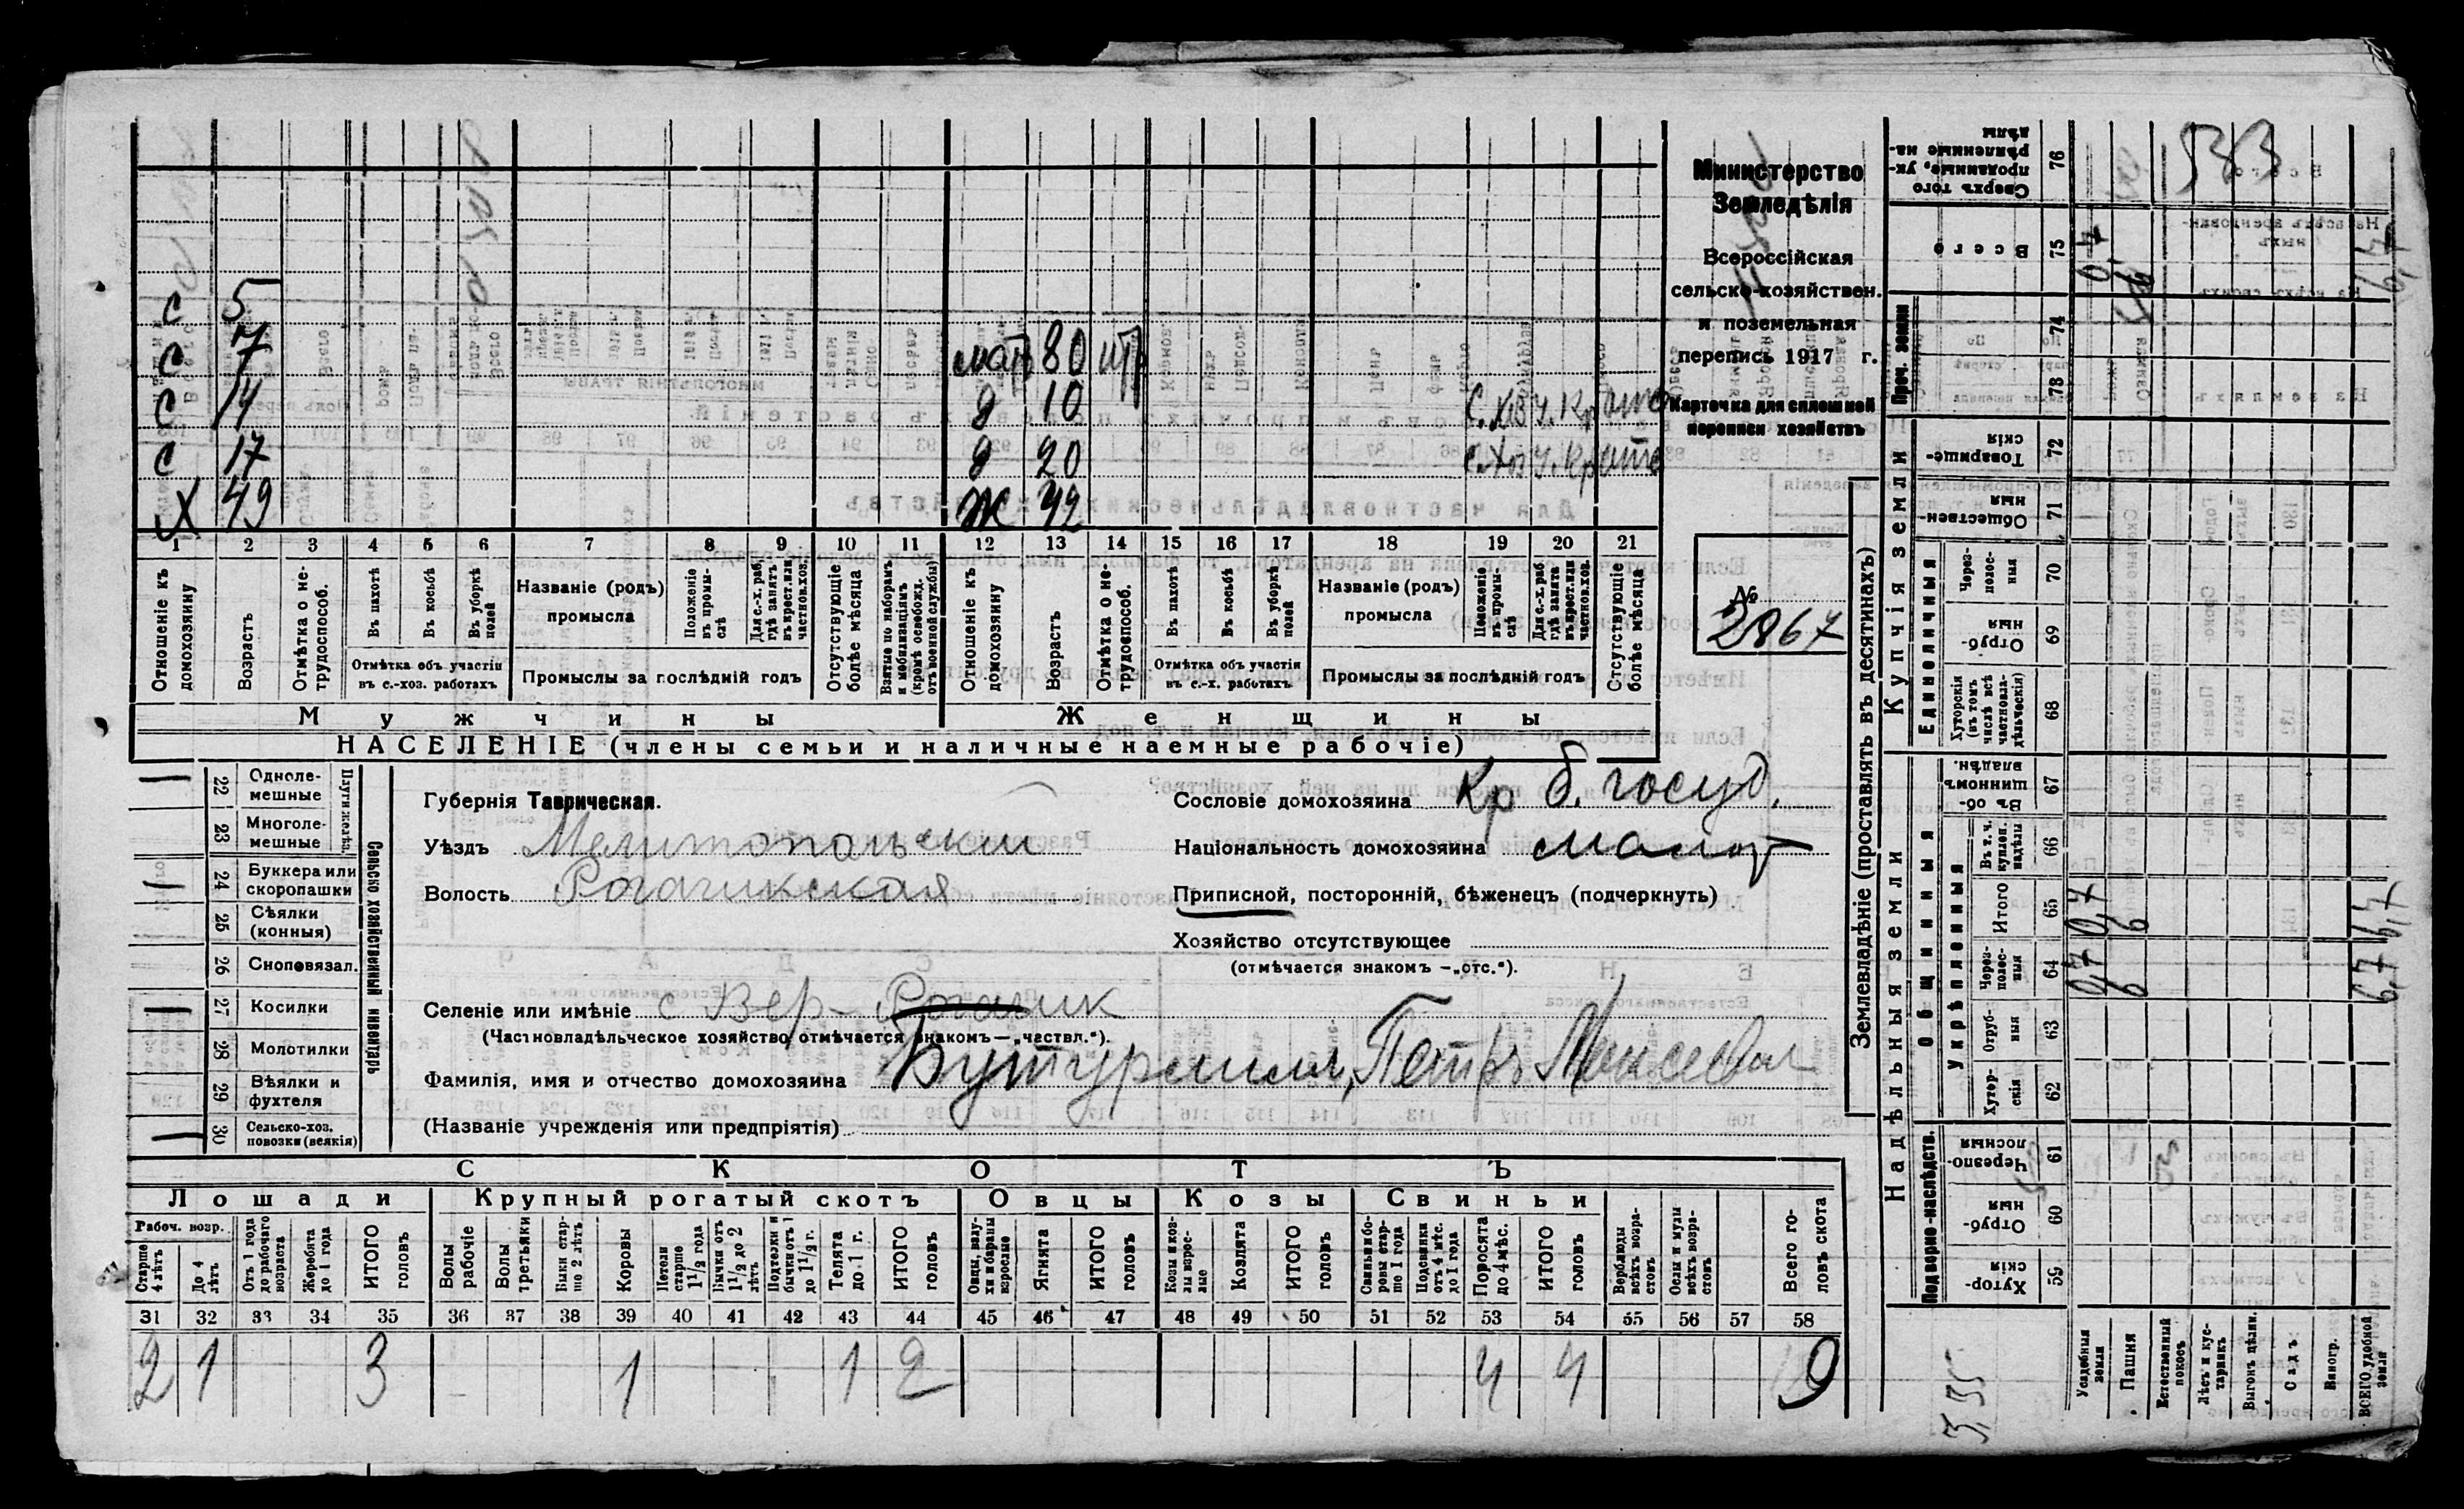 с 5
с 7 мат 80 нтр
с 14 д 10
с 17 д 20
Х 49 Ж 42
1 2 3 4 5 6 7 8 9 10 11 12 13 14 15 16 17 18 19 20 21
Отношеніе къ домохозяину
Возрастъ
Отмѣтка о нетрудоспособ.
Въ пахотѣ
Въ косьбѣ
Въ уборкѣ полей
Отмѣтка объ участіи въ с.-хоз. работахъ
Названіе (родъ) промысла
Положеніе въ промыслѣ
Для с.-х. раб. гдѣ занятъ въ крест. или частнов. хоз.
Промыслы за послѣдній годъ
Отсутствующіе болѣе мѣсяца
Взятые по наборамъ и мобилизаціямъ (кромѣ освобожд. отъ военной службы)
Отношеніе къ домохозяину
Возрастъ
Отмѣтка о нетрудоспособ.
Въ пахотѣ
Въ косьбѣ
Въ уборкѣ полей
Отмѣтка объ участіи въ с.-х. работахъ
Названіе (родъ) промысла
Положеніе въ промыслѣ
Для с.-х. раб. гдѣ занята въ крест. или частнов. хоз.
Промыслы за послѣдній годъ
Отсутствующіе болѣе мѣсяца
Мужчины Женщины
НАСЕЛЕНІЕ (члены семьи и наличные наемные рабочіе)
Министерство
Земледѣлія
Всероссійская
сельско-хозяйствен.
и поземельная
перепись 1917 г.
Карточка для сплошной
переписи хозяйствъ
№
2867
22 Одноле-мешные
23 Многоле-мешные
Плуги желѣзн.
24 Буккера или скоропашки
25 Сѣялки (конныя)
26 Сноповязал.
27 Косилки
28 Молотилки
29 Вѣялки и фухтеля
30 Сельско-хоз. повозки (всякія)
Сельско хозяйственный инвентарь
Губернія Таврическая.
Уѣздъ Мелитопольскій
Волость Рогачикская
Селеніе или имѣніе с Вер-Рогачик
(Частновладѣльческое хозяйство отмѣчается знакомъ—„частвл.“).
Фамилія, имя и отчество домохозяина Бутурлинъ, Петръ
(Названіе учрежденія или предпріятія)
Сословіе домохозяина Кр б. госуд.
Національность домохозяина малор
Приписной, посторонній, бѣженецъ (подчеркнуть)
Хозяйство отсутствующее
(отмѣчается знакомъ —„отс.“).
СКОТЪ
Лошади Крупный рогатый скотъ Овцы Козы Свиньи
Рабоч. возр.
Старше 4 лѣтъ
До 4 лѣтъ
Отъ 1 года до рабочаго возраста
Жеребята до 1 года
ИТОГО головъ
Волы рабочіе
Волы третьяки
Быки старше 2 лѣтъ
Коровы
Нетели старше 1½ года
Бычки отъ 1½ до 2 лѣтъ
Подтелки и бычки отъ 1 до 1½ г.
Телята до 1 г.
ИТОГО головъ
Овцы, валухи и бараны взрослые
Ягнята
ИТОГО головъ
Козы и козлы взрослые
Козлята
ИТОГО головъ
Свиньи боровы старше 1 года
Подсвинки отъ 4 мѣс. до 1 года
Поросята до 4 мѣс.
ИТОГО головъ
Верблюды всѣхъ возрастовъ
Ослы и мулы всѣхъ возрастовъ
Всего головъ скота
31 32 33 34 35 36 37 38 39 40 41 42 43 44 45 46 47 48 49 50 51 52 53 54 55 56 57 58
2 1 3 1 1 2 4 4 9
Землевладѣніе (проставлять въ десятинахъ)
Надѣльныя земли
Купчія земли
Проч. земли
Подворно-наслѣдств.
Общинныя
Укрѣпленныя
Единоличныя
59 Хуторскія
60 Отрубныя
61 Черезполосныя
62 Хуторскія
63 Отрубныя
64 Черезполосныя 0,7 6 6,7
65 Итого 0,7 6 6,7
66 Въ т. ч. куплен. надѣлы
67 Въ общинномъ владѣн.
68 Хуторскія (въ томъ числѣ всѣ частновладѣльческія)
69 Отрубныя
70 Черезполосныя
71 Общественныя
72 Товарищескія
78
74
75 Всего 0,7 6 6,7
76 Сверхъ того проданные, укрѣпленные надѣлы
Усадебныя земли
Пашня
Естественный покосъ
Лѣсъ и кустарникъ
Выгонъ цѣлин.
Садъ
Виногр.
ВСЕГО удобной земли
533